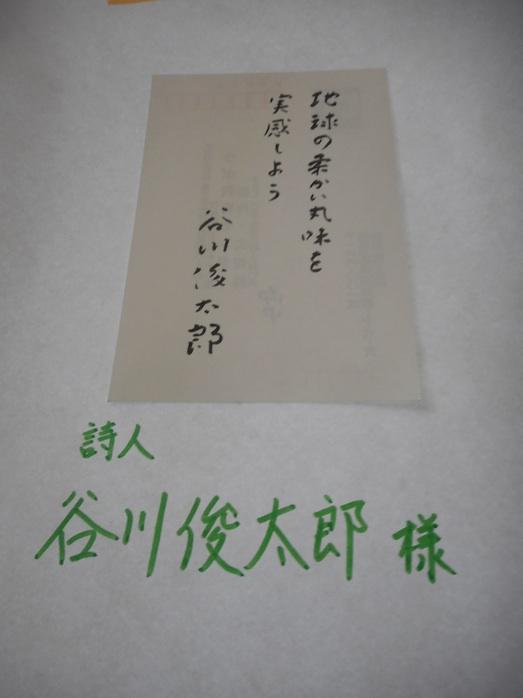 地球の柔かい丸味を
実感しよう
谷川俊太郎
詩人
谷川俊太郎 様